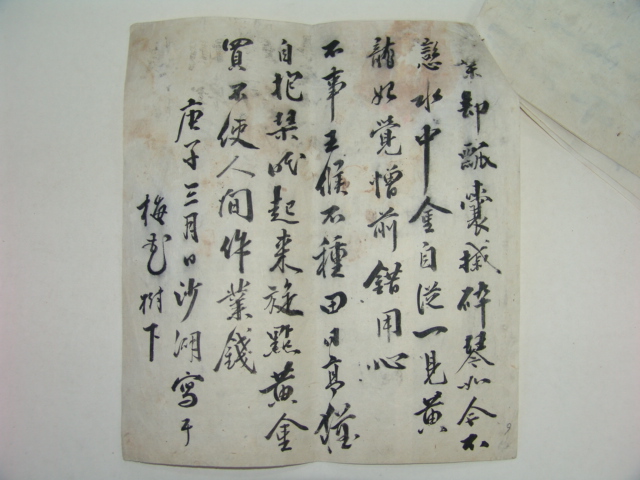 棄却瓢囊摵碎琴如今不
戀水中金自從一見黃
龍始覺憎前錯用心
不事王侯不種田日高猶
自抱琴眠起來旋點黃金
買不使人間作業錢
庚子三月日沙湖寫于
梅花樹下
9